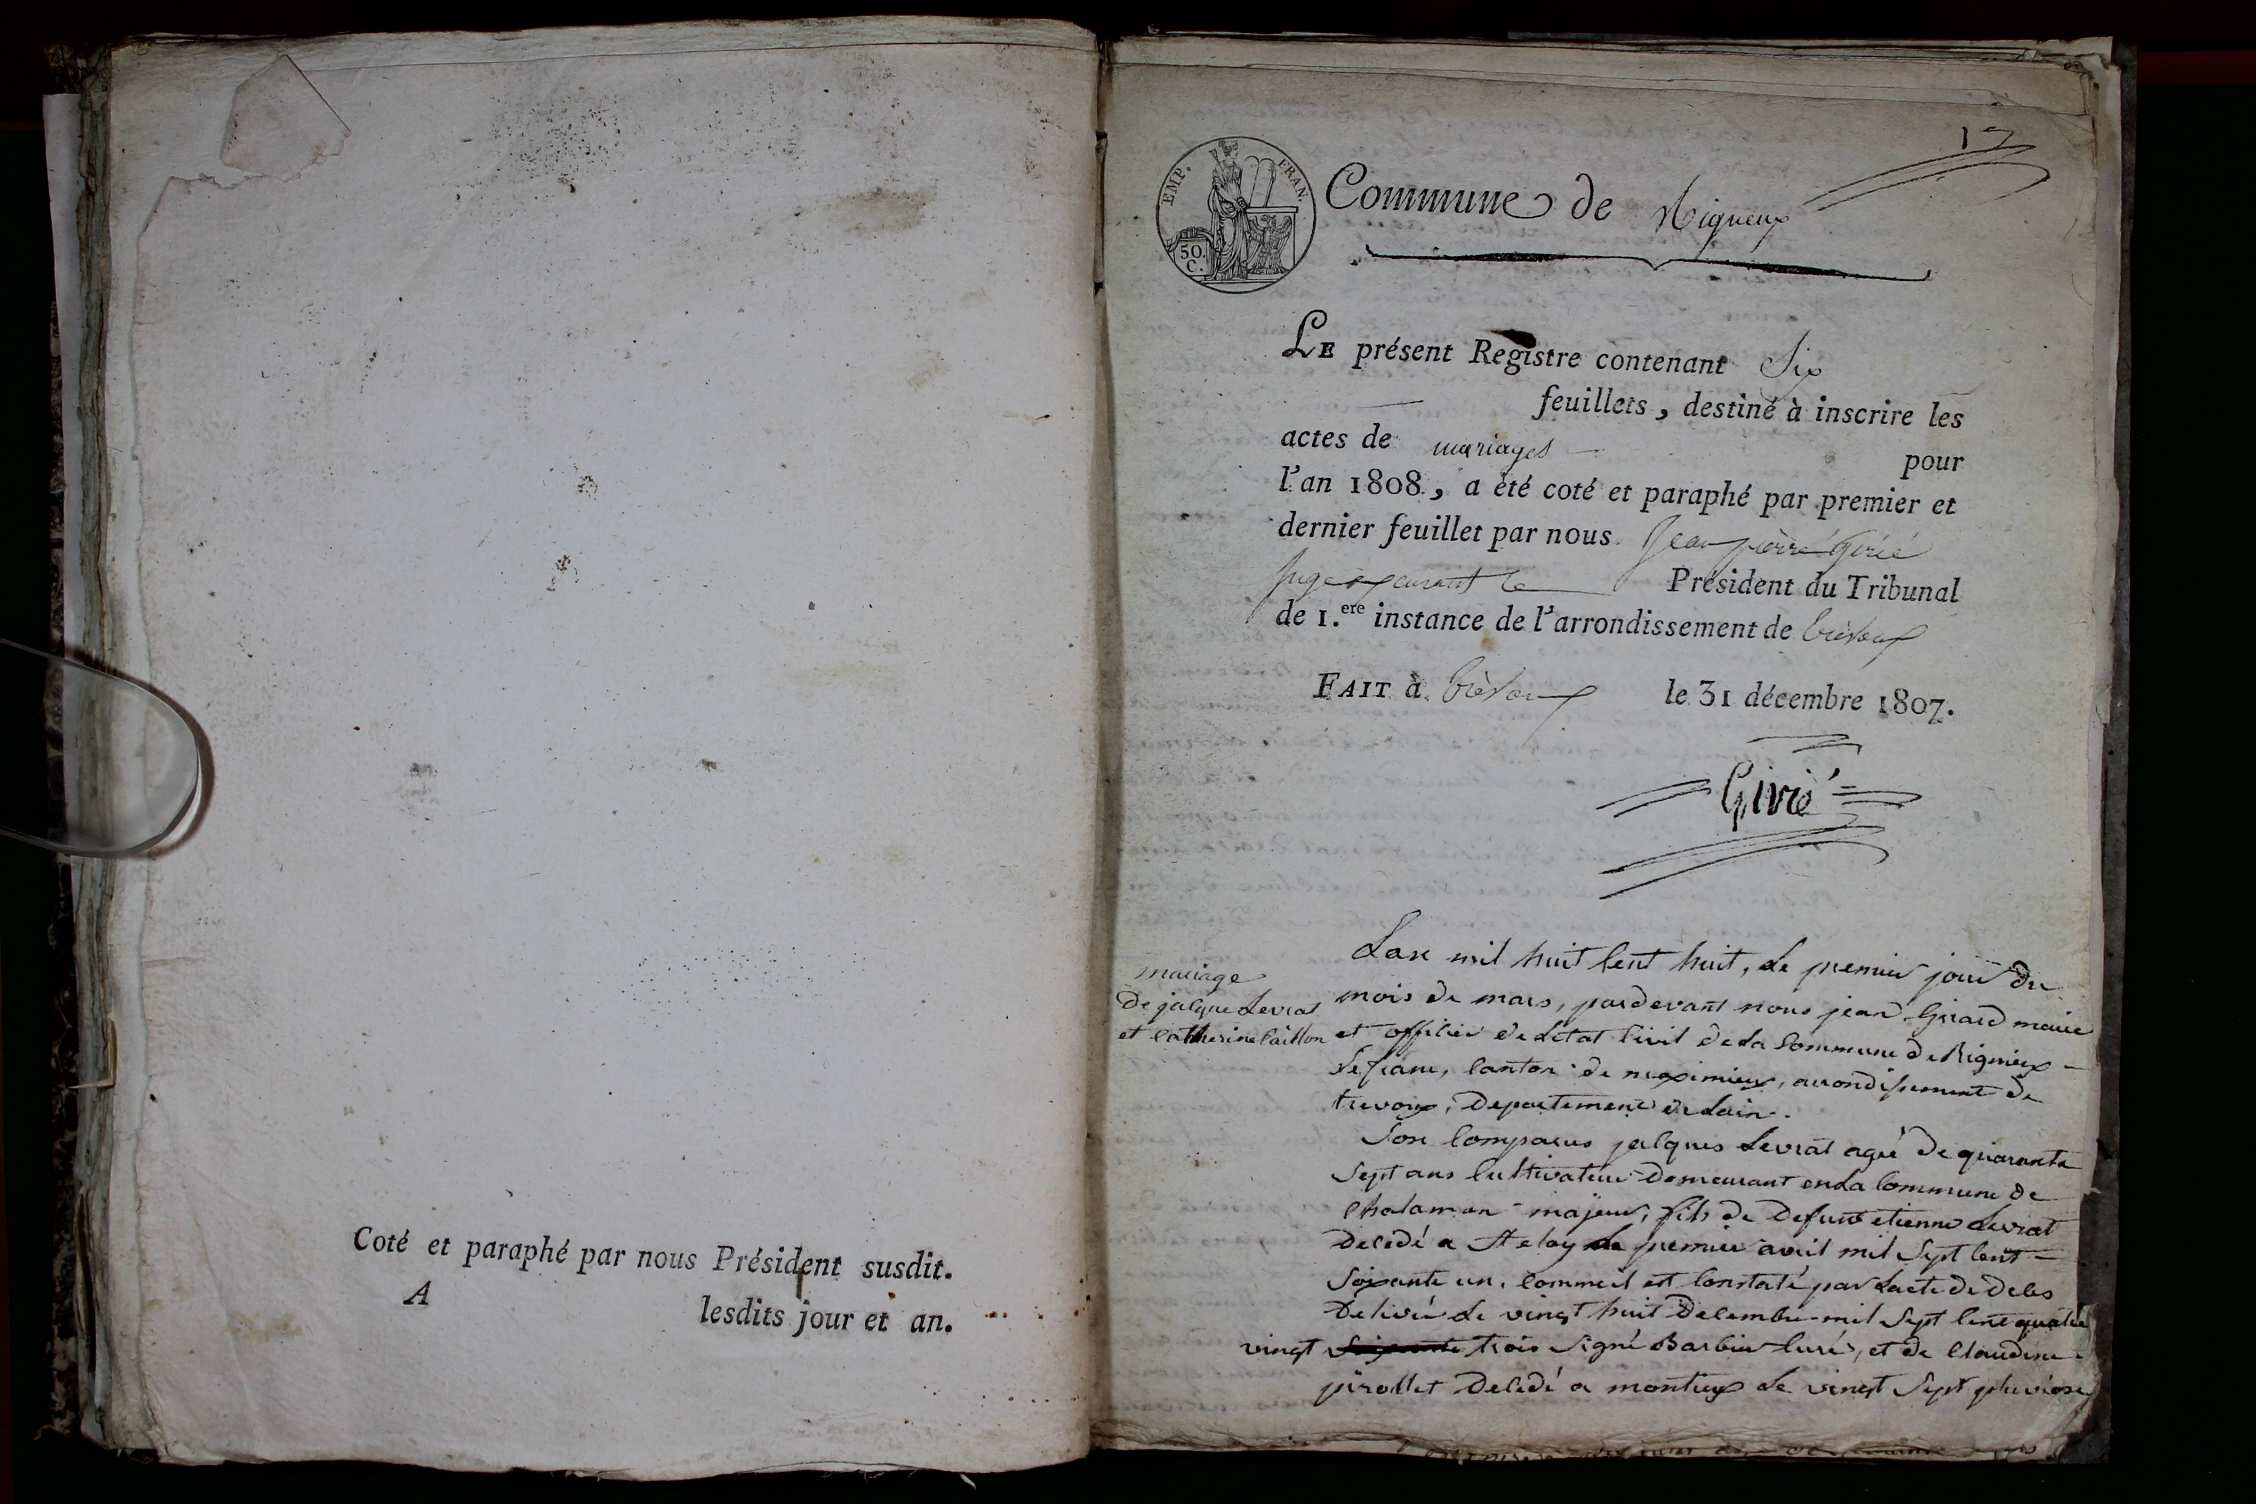 Coté et paraphé par nous Président susdit.
A lesdits jour et an.
17
EMP. FRAN.
50.
C.
Commune de Rigneux
LE présent Registre contenant Six
feuillets, destiné à inscrire les
actes de mariages pour
l'an 1808, a été coté et paraphé par premier et
dernier feuillet par nous Jean pierre Girié
Juge exerçant le Président du Tribunal
de 1.ere instance de l'arrondissement de trévoux
FAIT à trévoux le 31 décembre 1807.
Girié
mariage
De jacque Levrat
et Catherine Caillon
Lan mil huit Cent huit, Le premier jour du
mois de mars, pardevant nous jean Girard maire
et officier de Létat Civil de La Commune de Rignieux
Le franc, Canton de meximieux, arrondissement de
trevoux, Departement de Lain.
Son Comparus jacques Levrat agé de quarante
Sept ans Cultivateur Demeurant en La Commune de
Chalamon majeur, fils de Defunt etienne Levrat
Décédé a St eloy Le premier avril mil Sept Cent
Soixante un, Comme il est Constaté par Lacte de deces
Delivré Le vingt huit Decembre mil Sept Cent quatre
vingt trois Signé Barbier Curé, et de Claudine
pirollet Décédé a montieux Le vingt Sept pluviose